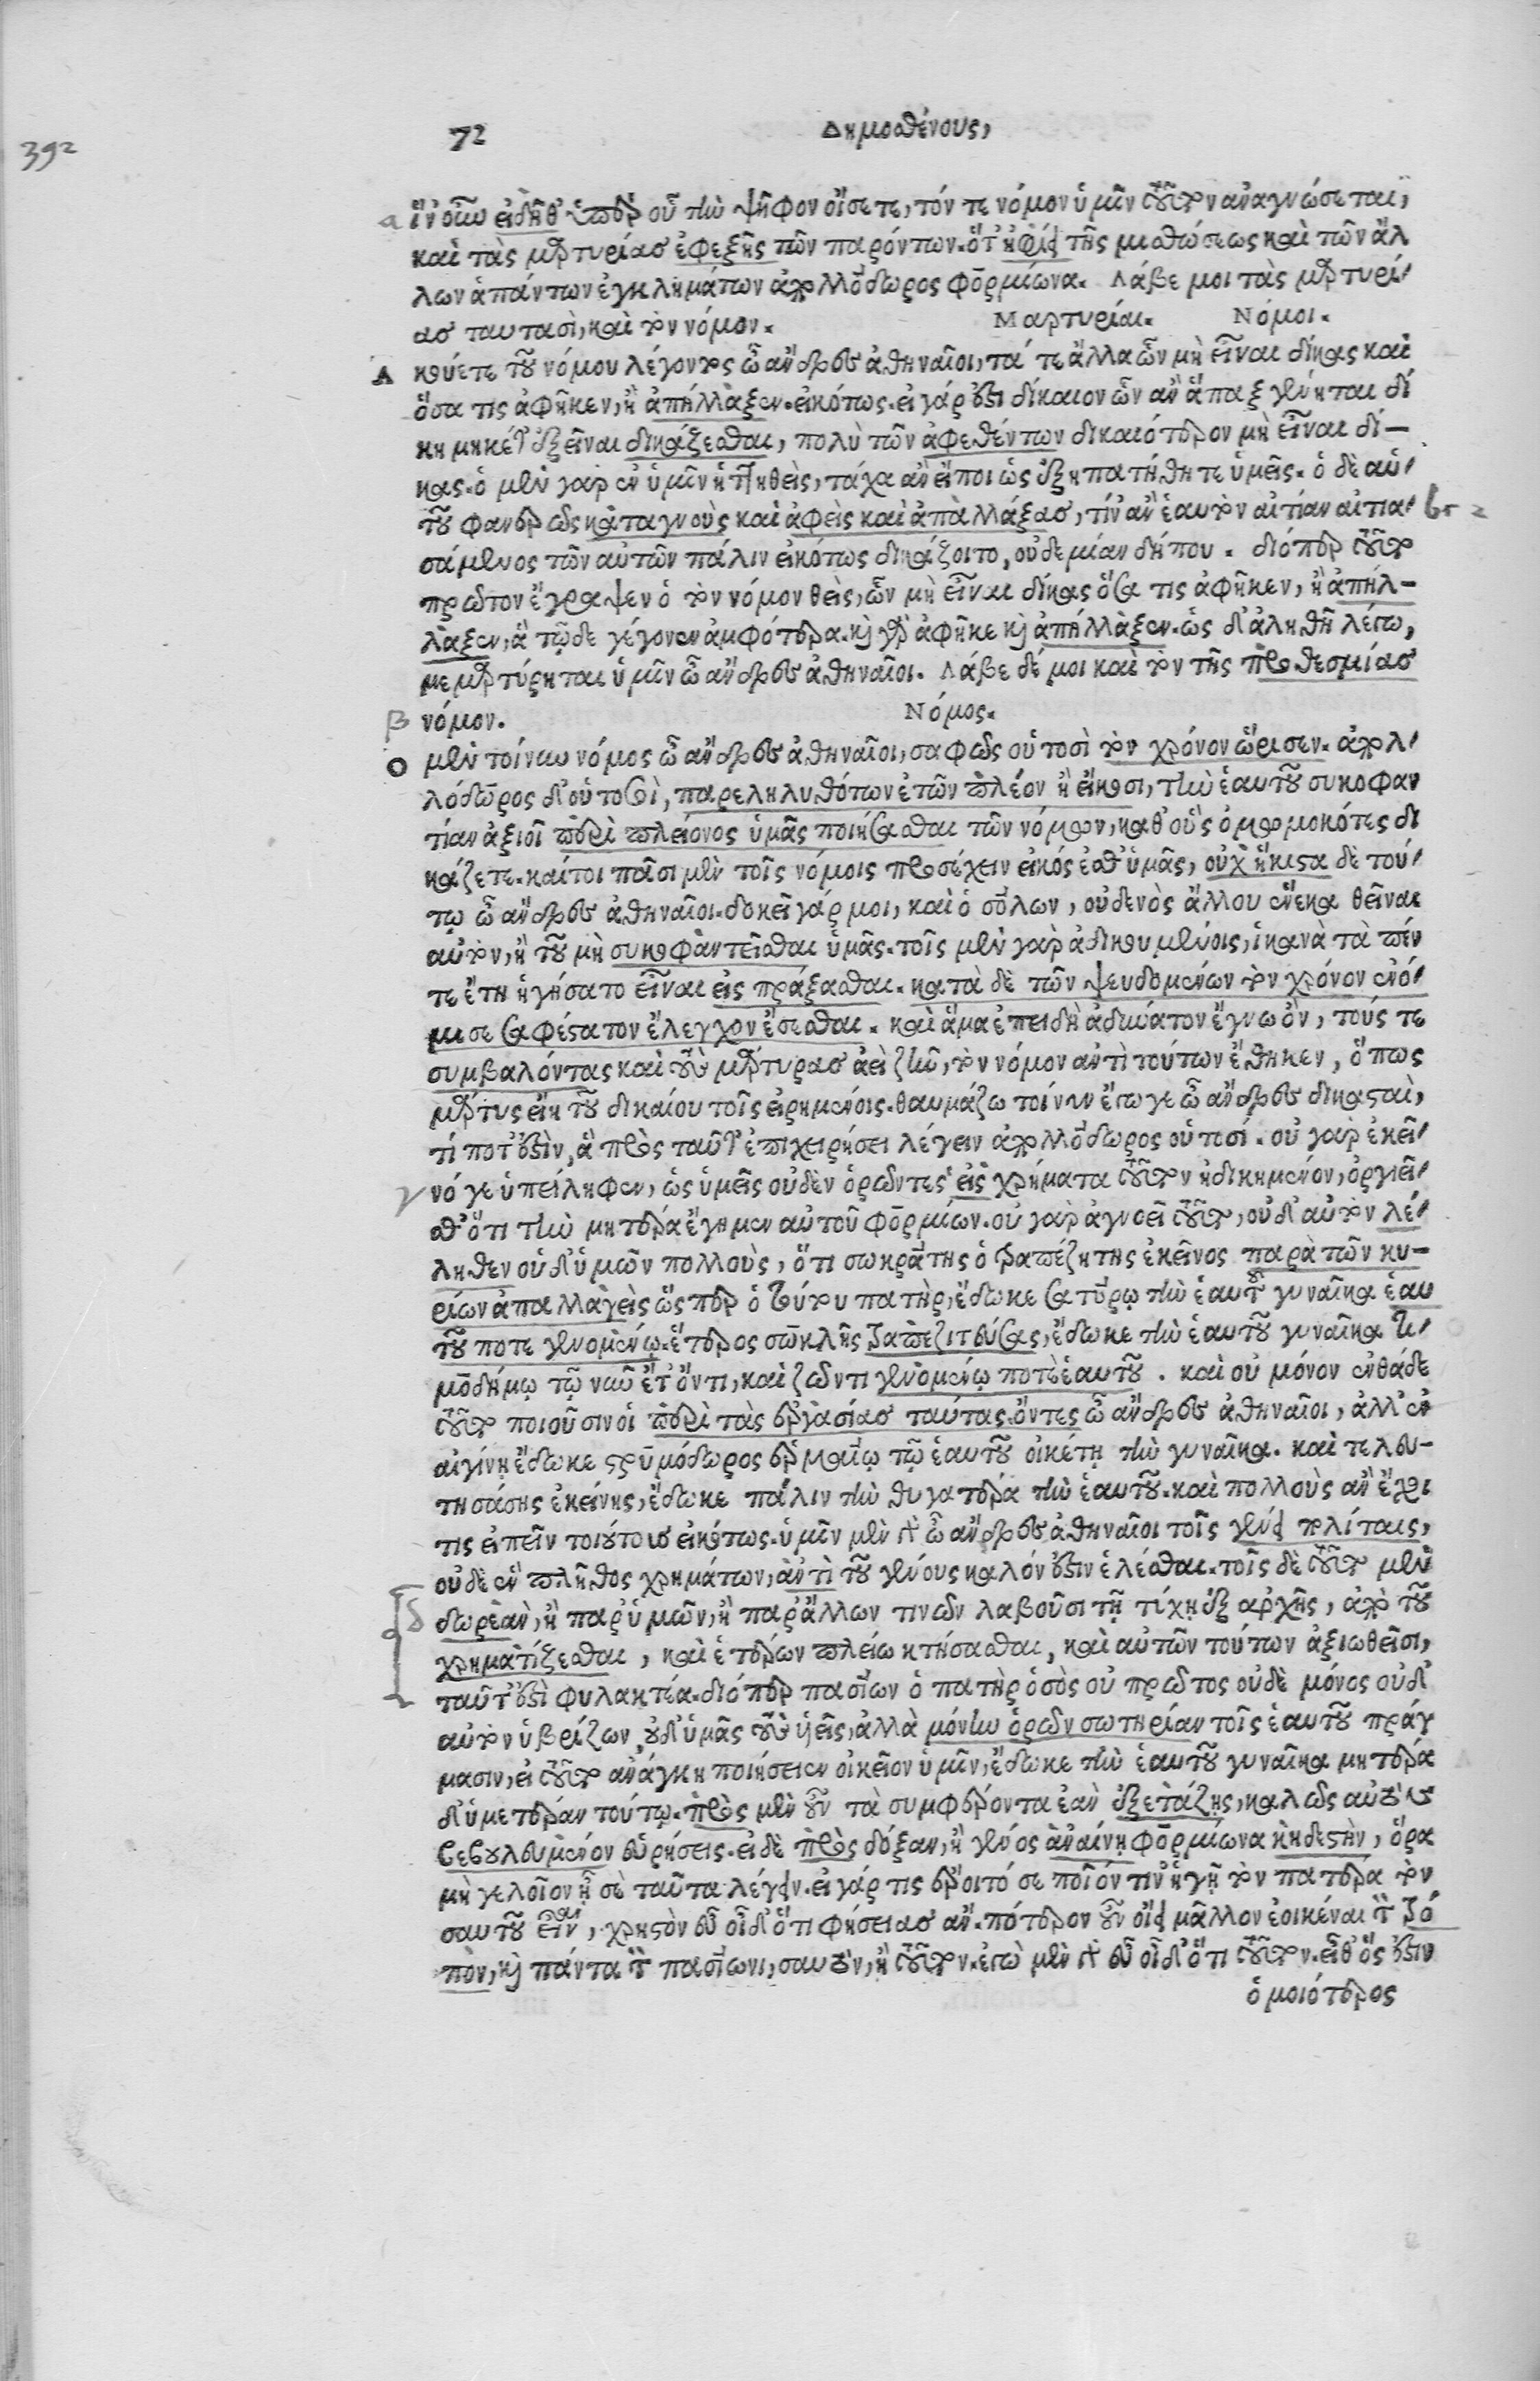 392
72 Δημοσθένους,
a ἵν' οὖν εἰδῆθ' ὑπὲρ οὗ τὴν ψῆφον οἴσετε, τόν τε νόμον ὑμῖν τοῦτον ἀναγνώσεται,
καὶ τὰς μαρτυρίας ἐφεξῆς τῶν παρόντων. ὅτ' ἠφίει τῆς μισθώσεως καὶ τῶν ἄλ
λων ἁπάντων ἐγκλημάτων ἀπολλόδωρος φορμίωνα. Λάβε μοι τὰς μαρτυρί-
ας ταυτασὶ, καὶ τὸν νόμον. Μαρτυρίαι. Νόμοι.
Α κούετε τοῦ νόμου λέγοντος ὦ ἄνδρες ἀθηναῖοι, τά τε ἄλλα ὧν μὴ εἶναι δίκας καὶ
ὅσα τις ἀφῆκεν, ἢ ἀπήλλαξεν. εἰκότως. εἰ γάρ ἐστι δίκαιον ὧν ἂν ἅπαξ γένηται δί
κη μηκέτ' ἐξεῖναι δικάζεσθαι, πολὺ τῶν ἀφεθέντων δικαιότερον μὴ εἶναι δί-
κας. ὁ μὲν γὰρ ἐν ὑμῖν ἡττηθεὶς, τάχα ἂν εἴποι ὡς ἐξηπατήθητε ὑμεῖς. ὁ δὲ αὑ-
τοῦ φανερῶς καταγνοὺς καὶ ἀφεὶς καὶ ἀπαλλάξας, τίν' ἂν ἑαυτὸν αἰτίαν αἰτια-
σάμενος τῶν αὐτῶν πάλιν εἰκότως δικάζοιτο, οὐδεμίαν δήπου. διόπερ τοῦτο
πρῶτον ἔγραψεν ὁ τὸν νόμον θεὶς, ὧν μὴ εἶναι δίκας ὅσα τις ἀφῆκεν, ἢ ἀπήλ-
λαξεν, ἃ τῷδε γέγονεν ἀμφότερα. καὶ γὰρ ἀφῆκε καὶ ἀπήλλαξεν. ὡς δ' ἀληθῆ λέγω,
μεμαρτύρηται ὑμῖν ὦ ἄνδρες ἀθηναῖοι. Λάβε δέ μοι καὶ τὸν τῆς προθεσμίας
β νόμον. Νόμος.
Ο μὲν τοίνυν νόμος ὦ ἄνδρες ἀθηναῖοι, σαφῶς οὑτοσὶ τὸν χρόνον ὥρισεν. ἀπολ-
λόδωρος δ' οὑτοσὶ, παρεληλυθότων ἐτῶν πλέον ἢ εἴκοσι, τὴν ἑαυτοῦ συκοφαν
τίαν ἀξιοῖ περὶ πλείονος ὑμᾶς ποιήσασθαι τῶν νόμων, καθ' οὓς ὀμωμοκότες δι
κάζετε. καίτοι πᾶσι μὲν τοῖς νόμοις προσέχειν εἰκός ἐσθ' ὑμᾶς, οὐχ ἥκιστα δὲ τού-
τῳ ὦ ἄνδρες ἀθηναῖοι. δοκεῖ γάρ μοι, καὶ ὁ σόλων, οὐδενὸς ἄλλου ἕνεκα θεῖναι
αὐτὸν, ἢ τοῦ μὴ συκοφαντεῖσθαι ὑμᾶς. τοῖς μὲν γὰρ ἀδικουμένοις, ἱκανὰ τὰ πέν
τε ἔτη ἡγήσατο εἶναι εἰς πράξασθαι. κατὰ δὲ τῶν ψευδομένων τὸν χρόνον ἐνό-
μισε σαφέστατον ἔλεγχον ἔσεσθαι. καὶ ἅμα ἐπειδὴ ἀδύνατον ἔγνω ὂν, τούς τε
συμβαλόντας καὶ τοὺς μάρτυρας ἀεὶ ζῆν, τὸν νόμον ἀντὶ τούτων ἔθηκεν, ὅπως
μάρτυς εἴη τοῦ δικαίου τοῖς εἰρημένοις. θαυμάζω τοίνυν ἔγωγε ὦ ἄνδρες δικασταὶ,
τί ποτ' ἐστὶν, ἃ πρὸς ταῦτ' ἐπιχειρήσει λέγειν ἀπολλόδωρος οὑτοσί. οὐ γὰρ ἐκεῖ-
γ νό γε ὑπείληφεν, ὡς ὑμεῖς οὐδὲν ὁρῶντες εἰς χρήματα τοῦτον ἠδικημένον, ὀργιεῖ-
σθ' ὅτι τὴν μητέρα ἔγημεν αὐτοῦ φορμίων. οὐ γὰρ ἀγνοεῖ τοῦτο, οὐδ' αὐτὸν λέ-
ληθεν οὐδ' ὑμῶν πολλοὺς, ὅτι σωκράτης ὁ τραπεζίτης ἐκεῖνος παρὰ τῶν κυ-
ρίων ἀπαλλαγεὶς ὥσπερ ὁ τούτου πατὴρ, ἔδωκε σατύρῳ τὴν ἑαυτοῦ γυναῖκα ἑαυ
τοῦ ποτε γενομένῳ. ἕτερος σωκλῆς τραπεζιτεύσας, ἔδωκε τὴν ἑαυτοῦ γυναῖκα τι-
μοδήμῳ τῷ νῦν ἔτ' ὄντι, καὶ ζῶντι γενομένῳ ποτὲ ἑαυτοῦ. καὶ οὐ μόνον ἐνθάδε
τοῦτο ποιοῦσιν οἱ περὶ τὰς ἐργασίας ταύτας ὄντες ὦ ἄνδρες ἀθηναῖοι, ἀλλ' ἐν
αἰγίνῃ ἔδωκε στρυμόδωρος ἑρμαίῳ τῷ ἑαυτοῦ οἰκέτῃ τὴν γυναῖκα. καὶ τελευ-
τησάσης ἐκείνης, ἔδωκε πάλιν τὴν θυγατέρα τὴν ἑαυτοῦ. καὶ πολλοὺς ἂν ἔχοι
τις εἰπεῖν τοιούτους εἰκότως. ὑμῖν μὲν γὰρ ὦ ἄνδρες ἀθηναῖοι τοῖς γένει πολίταις,
οὐδὲ ἓν πλῆθος χρημάτων, ἀντὶ τοῦ γένους καλόν ἐστιν ἑλέσθαι. τοῖς δὲ τοῦτο μὲν
δ δωρεὰν, ἢ παρ' ὑμῶν, ἢ παρ' ἄλλων τινῶν λαβοῦσι τῇ τύχῃ ἐξ ἀρχῆς, ἀπὸ τοῦ
χρηματίζεσθαι, καὶ ἑτέρων πλείω κτήσασθαι, καὶ αὐτῶν τούτων ἀξιωθεῖσι,
ταῦτ' ἐστὶ φυλακτέα. διόπερ πασίων ὁ πατὴρ ὁ σὸς οὐ πρῶτος οὐδὲ μόνος οὐδ'
αὑτὸν ὑβρίζων, οὐδ' ὑμᾶς τοὺς υἱεῖς, ἀλλὰ μόνην ὁρῶν σωτηρίαν τοῖς ἑαυτοῦ πράγ
μασιν, εἰ τοῦτον ἀνάγκῃ ποιήσειεν οἰκεῖον ὑμῖν, ἔδωκε τὴν ἑαυτοῦ γυναῖκα μητέρα
δ' ὑμετέραν τούτῳ. πρὸς μὲν οὖν τὰ συμφέροντα ἐὰν ἐξετάζῃς, καλῶς αὐτὸν
βεβουλευμένον εὑρήσεις. εἰ δὲ πρὸς δόξαν, ἢ γένος ἀναίνῃ φορμίωνα κηδεστὴν, ὅρα
μὴ γελοῖον ᾖ σὲ ταῦτα λέγειν. εἰ γάρ τις ἔροιτό σε ποῖόν τιν' ἡγῇ τὸν πατέρα τὸν
σαυτοῦ εἶναι, χρηστὸν εὖ οἶδ' ὅτι φήσειας ἄν. πότερον οὖν οἴει μᾶλλον ἐοικέναι τὸν τρό
πον, καὶ πάντα τὸν βίον πασίωνι, σαυτὸν, ἢ τοῦτον. ἐγὼ μὲν γὰρ εὖ οἶδ' ὅτι τοῦτον. εἶθ' ὅς ἐστιν
ὁμοιότερος